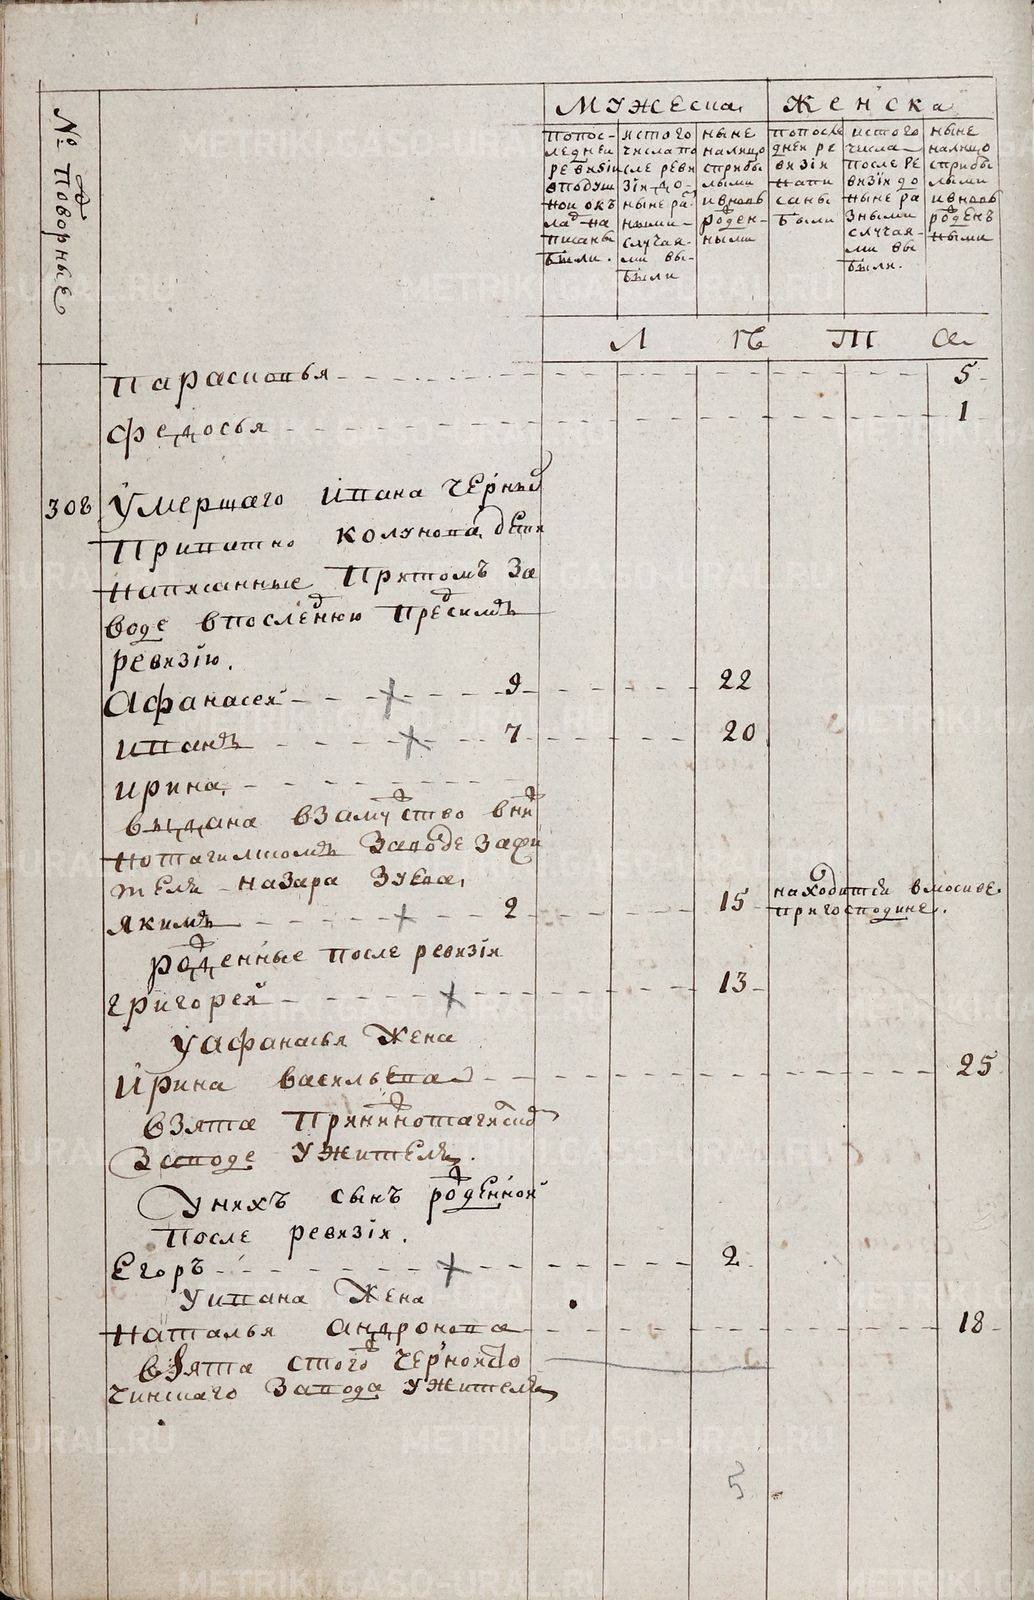 № Подворные
Мужеска
Женска
попос-
ледней
ревизiи
вподуш
ной окъ
ладъ на
писаны
были.
истого
числа по
сле реви
зiи до-
ныне ра
зными
случая-
ми вы-
были
ныне
налицо
сприбы
лыми
ивновь
рожден-
ными
попосле
дней ре
визiи
напи
саны
были
истого
числа
после ре
визiи до
ныне ра
зными
случая-
ми вы
были.
ныне
налицо
сприбы
лыми
ивновь
рожденъ
ными
Л е т а
Парасковья 5
Федосья 1
308 Умершаго Ивана Черныхъ
Припатно Колунова дети
написанные притомъ за
воде впоследнюю предсимъ
ревизiю.
Афанасей 9 22
Иванъ 7 20
Ирина
выдана взамужство внижн
нотагилскомъ заводе зажи
теля назара Зуева,
Якимъ 2 15 находитца вмоскве
пригосподине.
рожденные после ревизiи
Григорей 13
Уафанасья жена
Ирина Васильева 25
взята принижнотагилскомъ
заводе ужителя.
Унихъ сынъ рожденной
после ревизiи.
Егоръ 2
Уивана жена
Наталья Андронова 18
взята стогожъ Черноисто
чинскаго завода ужителя
5
METRIKI.GASO-URAL.RU